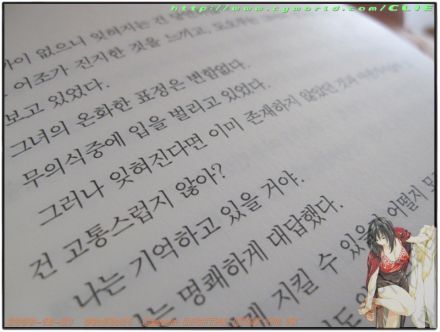 http://www.cyworld.com/CLIE
가이 없으니 잊혀지는 건 당연
어조가 진지한 것을 느끼고,
보고 있었다.
그녀의 온화한 표정은 변함없다.
무의식중에 입을 벌리고 있었다.
그러나 잊혀진다면 이미 존재하지 않았던 것과 마찬가지
건 고통스럽지 않아?
나는 기억하고 있을 거야.
는 명쾌하게 대답했다.
게 지킬 수 있을 어떨지 모